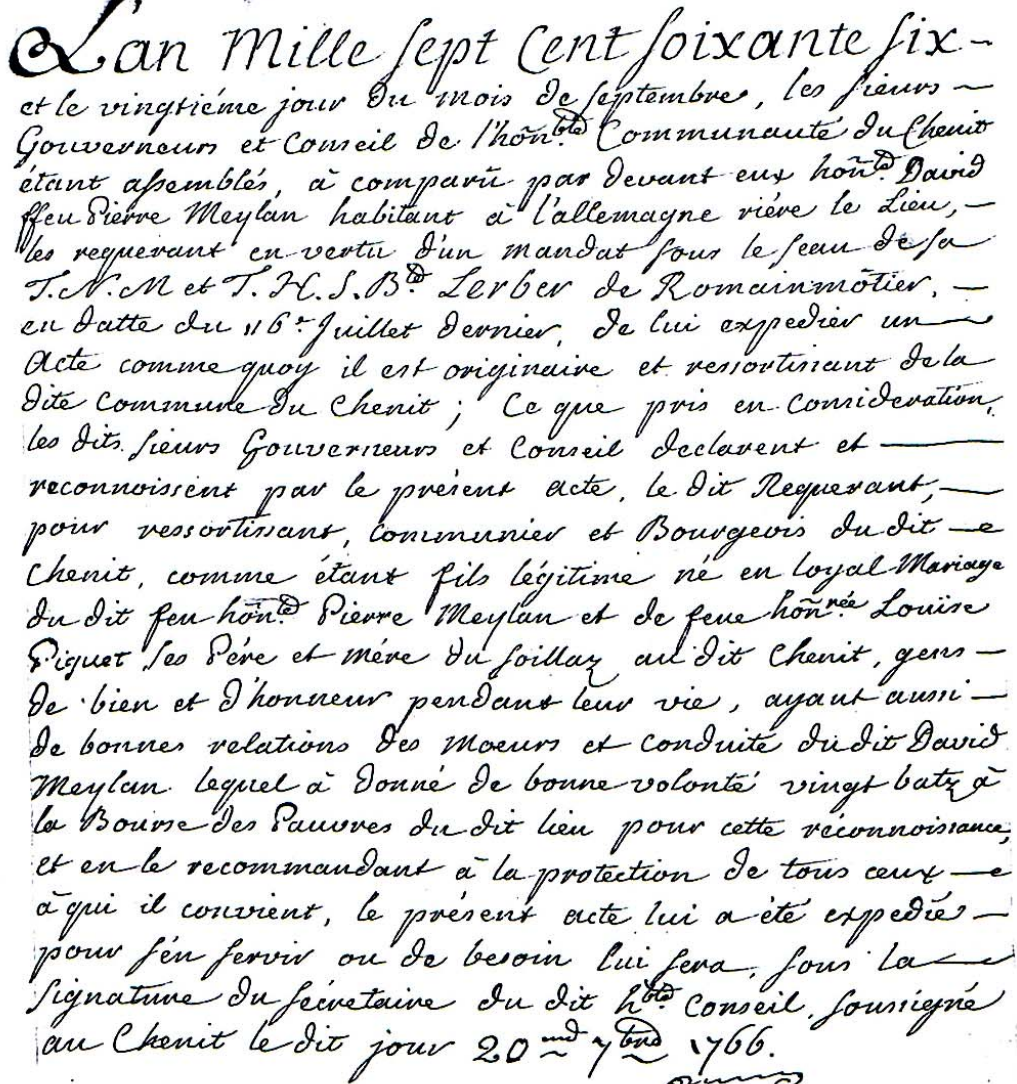 L'an Mille sept Cent soixante six -
et le vingtiéme jour du mois de septembre, les sieurs -
Gouverneurs et Conseil de l'hon.ble Communauté du Chenit
étant assemblés, à comparû par devant eux hon.ble David
ffeu Pierre Meylan habitant à l'allemagne riére le Lieu, -
les requerant en vertu d'un mandat sous le seau de sa
T.N.M et T.H.S.Bd. Lerber de Romainmôtier, -
en datte du 16e Juillet dernier, de lui expedier un
Acte comme quoy il est originaire et ressortissant de la
dite commune du Chenit ; Ce que pris en consideration,
les dits sieurs Gouverneurs et Conseil declarent et -
reconnoissent par le présent acte, le dit Requerant, -
pour ressortissant, communier et Bourgeois du dit -
Chenit, comme étant fils légitime né en loyal Mariage
du dit feu hon.ble Pierre Meylan et de feue honnrée Louïse
Piguet ses Pére et mére du soillaz au dit Chenit, gens -
de bien et d'honneur pendant leur vie, ayant aussi -
de bonnes relations des moeurs et conduite du dit David
Meylan lequel à donné de bonne volonté vingt batz à
la Bourse des Pauvres du dit lieu pour cette réconnoissance,
et en le recommandant à la protection de tous ceux -
à qui il convient, le présent acte lui a été expedié -
pour s'én servir ou de besoin lui sera, sous la -
signature du sécretaire du dit h.ble Conseil, soussigné
au Chenit le dit jour 20me 7bre 1766.